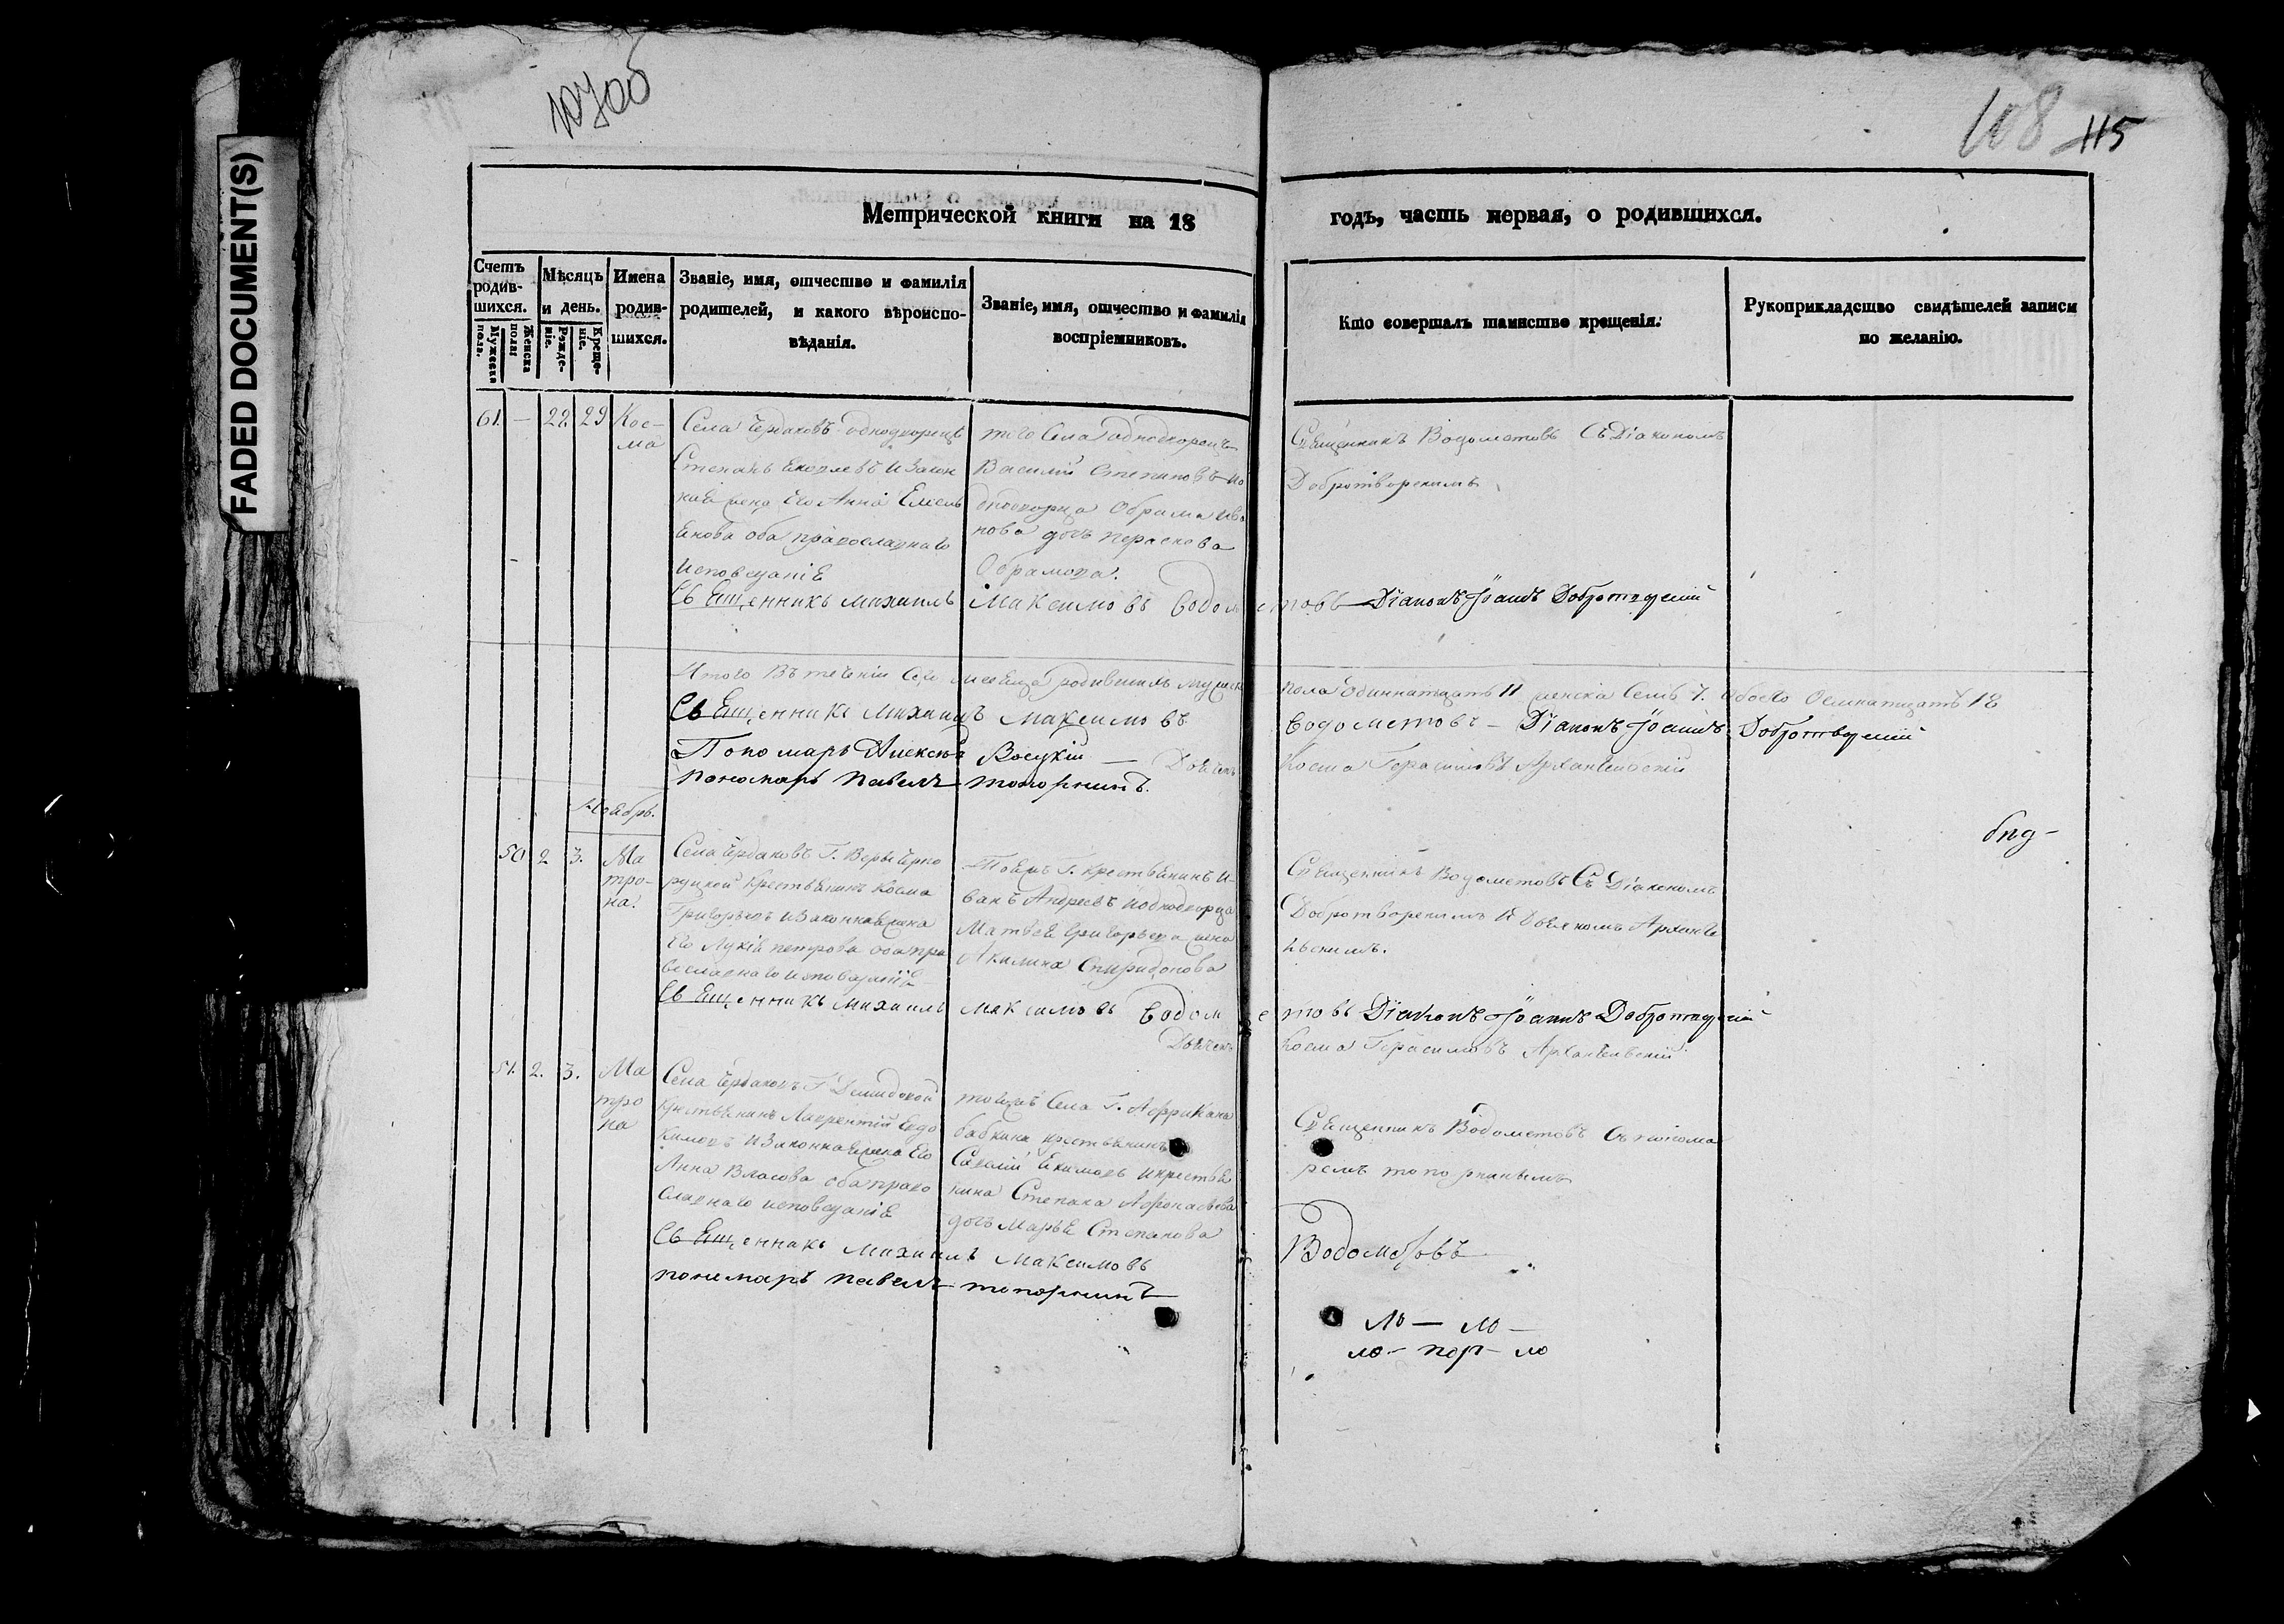 107об
108 115
FADED DOCUMENT(S)
Метрической книги на 18 годъ, часть первая, о родившихся.
Счетъ родив-шихся.
Мужеска пола.
Женска пола:
Мѣсяцъ и день.
Рожде-ніе.
Креще-ніе.
Имена родив-шихся.
Званіе, имя, отчество и фамилія
родителей, и какого вѣроиспо-
вѣданія.
Званіе, имя, отчество и фамилія
воспріемниковъ.
Кто совершалъ таинство крещенія.
Рукоприкладство свидѣтелей записи
по желанію.
61. — 22 29 Кос-
ма
Села Чердаковъ однодворецъ
Степанъ Яковлевъ и закон
ная жена Его Анна Емель
Енова оба православнаго
исповеданіЕ
того Села однодворецъ
Василий Степановъ и о
дноворца Обрама Ива
нова дочь Пераскева
Обрамова.
СвЕщенникъ Водометовъ Съ Діакономъ
Добротворскимъ
СвЕщенникъ Михаилъ Максимовъ Водометовъ Діаконъ Іоаннъ Добротворский
Итого Въ теченіи Сего месЕца родившихъ мужеск пола Одиннатцать 11 женска Семь 7. обоего Осмнатцать 18
СвЕщенникъ Михаилъ Максимовъ Водометовъ — Діаконъ Іоаннъ Добротворский
Пономарь Алексѣй — Дьячекъ Косма Герасимовъ Архангельский
пономарь Павелъ топорнинъ.
Ноябрь.
50 2 3. Ма
тро-
на.
Села Чердаковъ Г. Веры
крестьЕнинъ Косма
Григорьевъ и законная жена
Его Лукія Петрова оба пра
вославнаго исповеданіЕ
Тоежъ Г. крестьЕнинъ И-
ванъ Андреевъ и однодворца
МатвеЕ Григорьева жена
Акилина Спиридонова
СвЕщенникъ Водометовъ Съ Діакономъ
Добротворскимъ и Дьячкомъ Арханге
льскимъ.
СвЕщенникъ Михаилъ Максимовъ Водометовъ Діаконъ Іоаннъ Добротворский
Дьячекъ Косма Герасимовъ Архангельский
51. 2. 3. Ма
тро
на
Села Чердаковъ Г. Демидовой
крестьЕнинъ Лаврентій Евдо
кимовъ и законная жена Его
Анна Власова оба право
славнаго исповеданіЕ
тогожъ Села Г. Аффрикана
бабкина крестьЕнинъ
Савелий Екимовъ и крестьЕ
нина Степана Афонасьева
дочь МарьЕ Степанова
СвЕщенникъ Водометовъ Съ понома
ремъ топорнинымъ
СвЕщенникъ Михаилъ Максимовъ Водометовъ
пономарь Павелъ топорнинъ